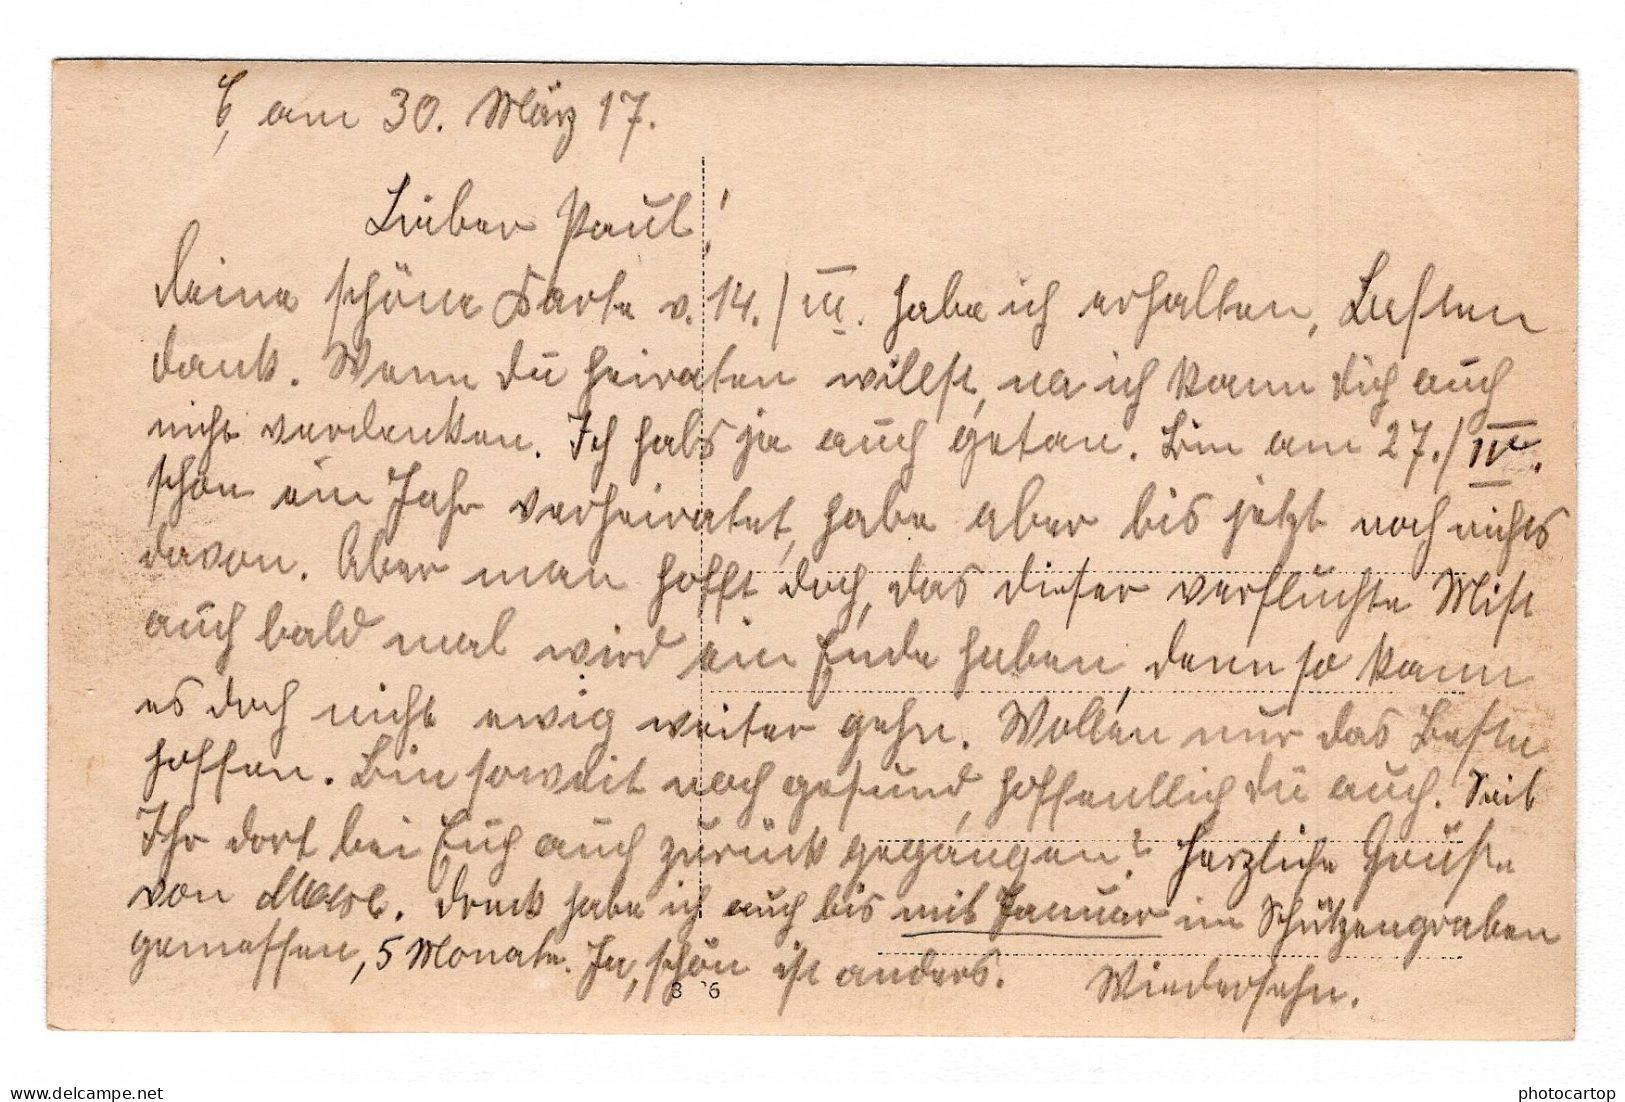 am 30. März 17.
Lieber Paul!
Deine schöne Karte v. 14./III. habe ich erhalten, Besten
dank. Wenn du heiraten willst, na ich kann dich auch
nicht verdenken. Ich habs ja auch getan. Bin am 27./IV.
schon ein Jahr verheiratet, habe aber bis jetzt noch nichts
davon. Aber man hofft doch, das dieser verfluchte Mist
auch bald mal wird ein Ende haben, denn so kann
es doch nicht ewig weiter gehn. Wollen nur das Beste
hoffen. Bin soweit noch gesund, hoffentlich du auch. Seit
Ihr dort bei Euch auch zurück gegangen? Herzliche Grüße
von Dreck habe ich auch bis mit Januar im Schützengraben
genossen, 5 Monate. Ja, schön ist anders. Wiedersehn.
3 6
www.delcampe.net
photocartop